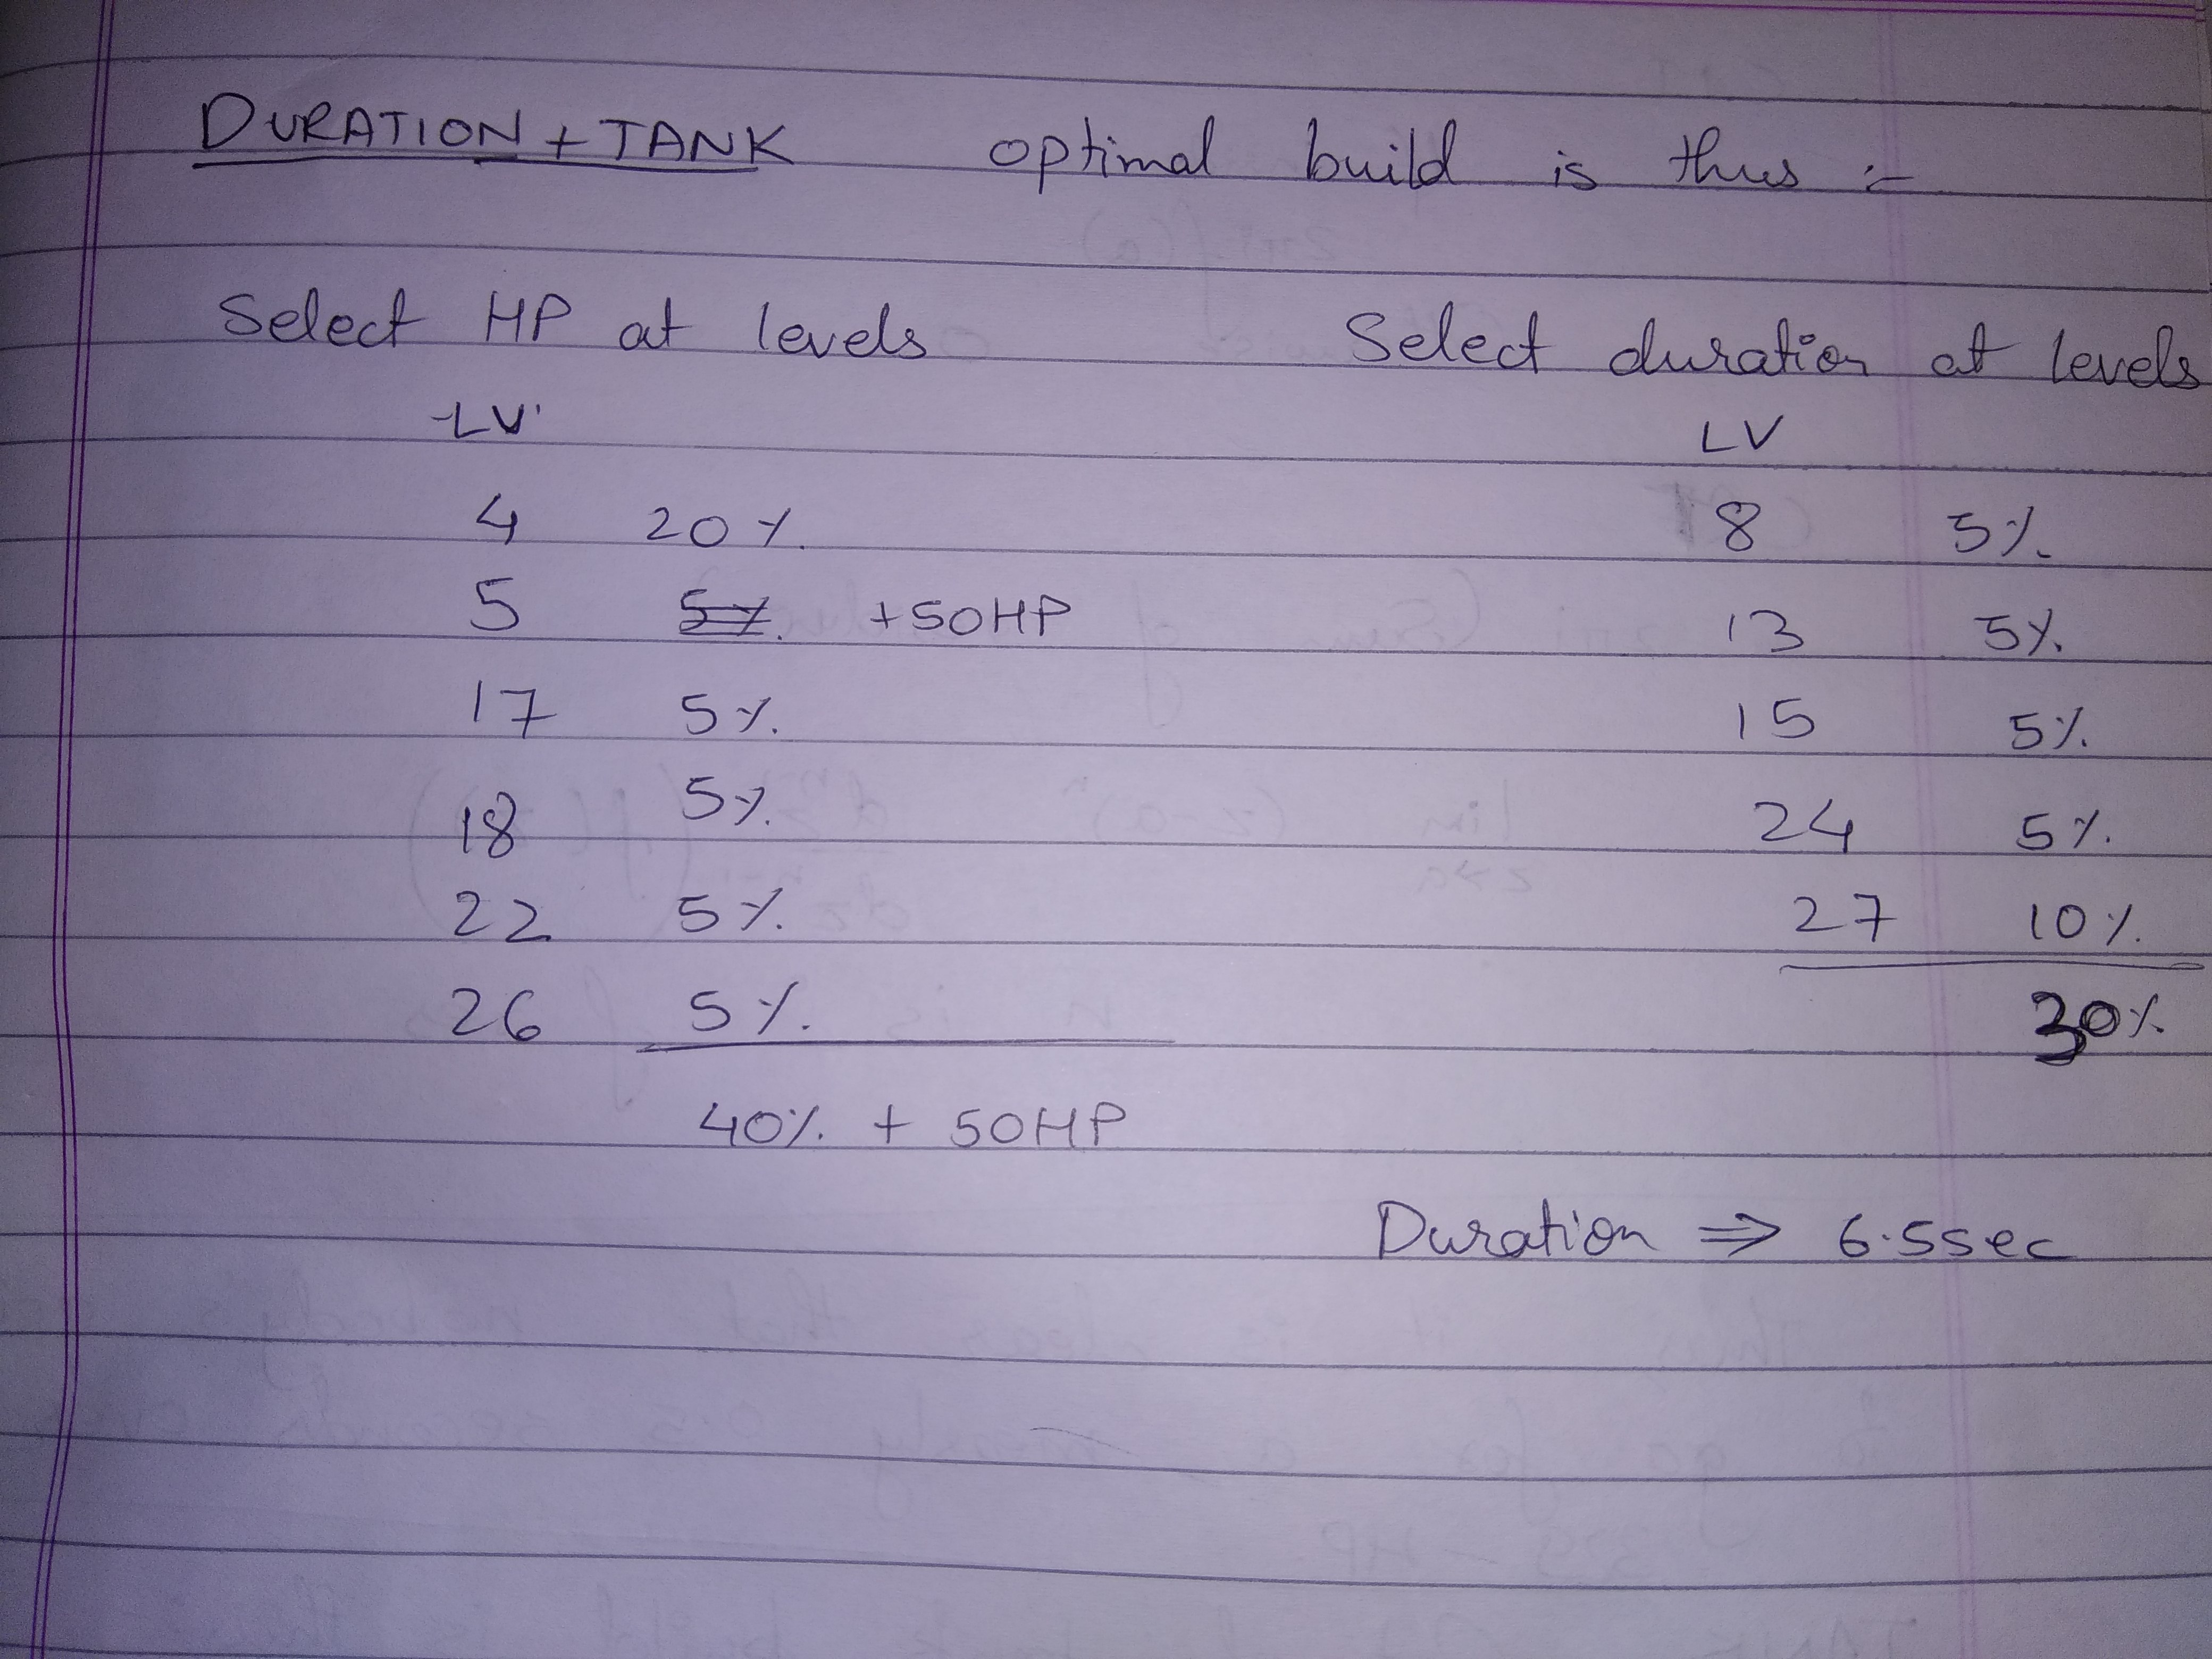 DURATION + TANK optimal build is thus :-
Select HP at levels Select duration at levels
LV LV
4 20% 8 5%
5 5% +50HP 13 5%
17 5% 15 5%
18 5% 24 5%
22 5% 27 10%
26 5% 30%
40% + 50HP
Duration ⇒ 6.5sec